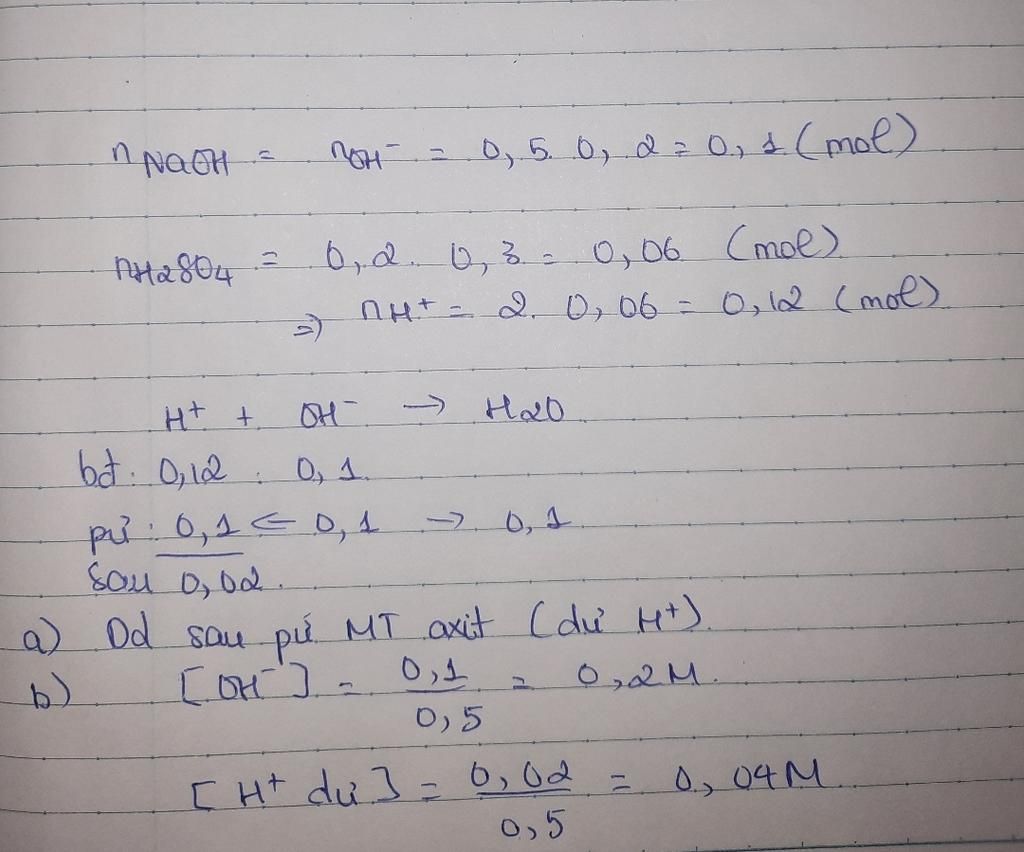 nNaOH = nOH⁻ = 0,5. 0,2 = 0,1 (mol)
nH2SO4 = 0,2. 0,3 = 0,06 (mol)
=> nH⁺ = 2. 0,06 = 0,12 (mol)
H⁺ + OH⁻ → H2O
bđ: 0,12 : 0,1
pứ: 0,1 ← 0,1 → 0,1
Sau 0,02.
a) Dd sau pứ MT axit (dư H⁺)
b) [OH⁻] = 0,1/0,5 = 0,2M.
[H⁺ dư] = 0,02/0,5 = 0,04M